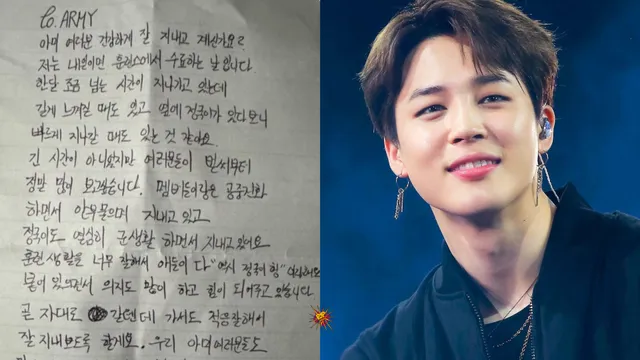 to. ARMY
아미 여러분 건강하게 잘 지내고 계신가요?
저는 내일이면 훈련소에서 수료하는 날 입니다.
한달 조금 넘는 시간이 지나가고 있는데
길게 느껴질 때도 있고 옆에 정국이가 있다보니
빠르게 지나갈 때도 있는 것 같아요.
긴 시간이 아니었지만 여러분들이 벌써부터
정말 많이 보고싶습니다. 멤버들이랑은 공중전화
하면서 안부 물으며 지내고 있고
정국이도 열심히 군생활 하면서 지내고 있어요
훈련생활을 너무 잘해서 애들이 다 "역시 정국이 형" 이라해요
붙어 있으면서 의지도 많이 하고 힘이 되어주고 있습니다
곧 자대로 갈텐데 가서도 적응 잘해서
잘 지내보도록 할게요. 우리 아미 여러분들도